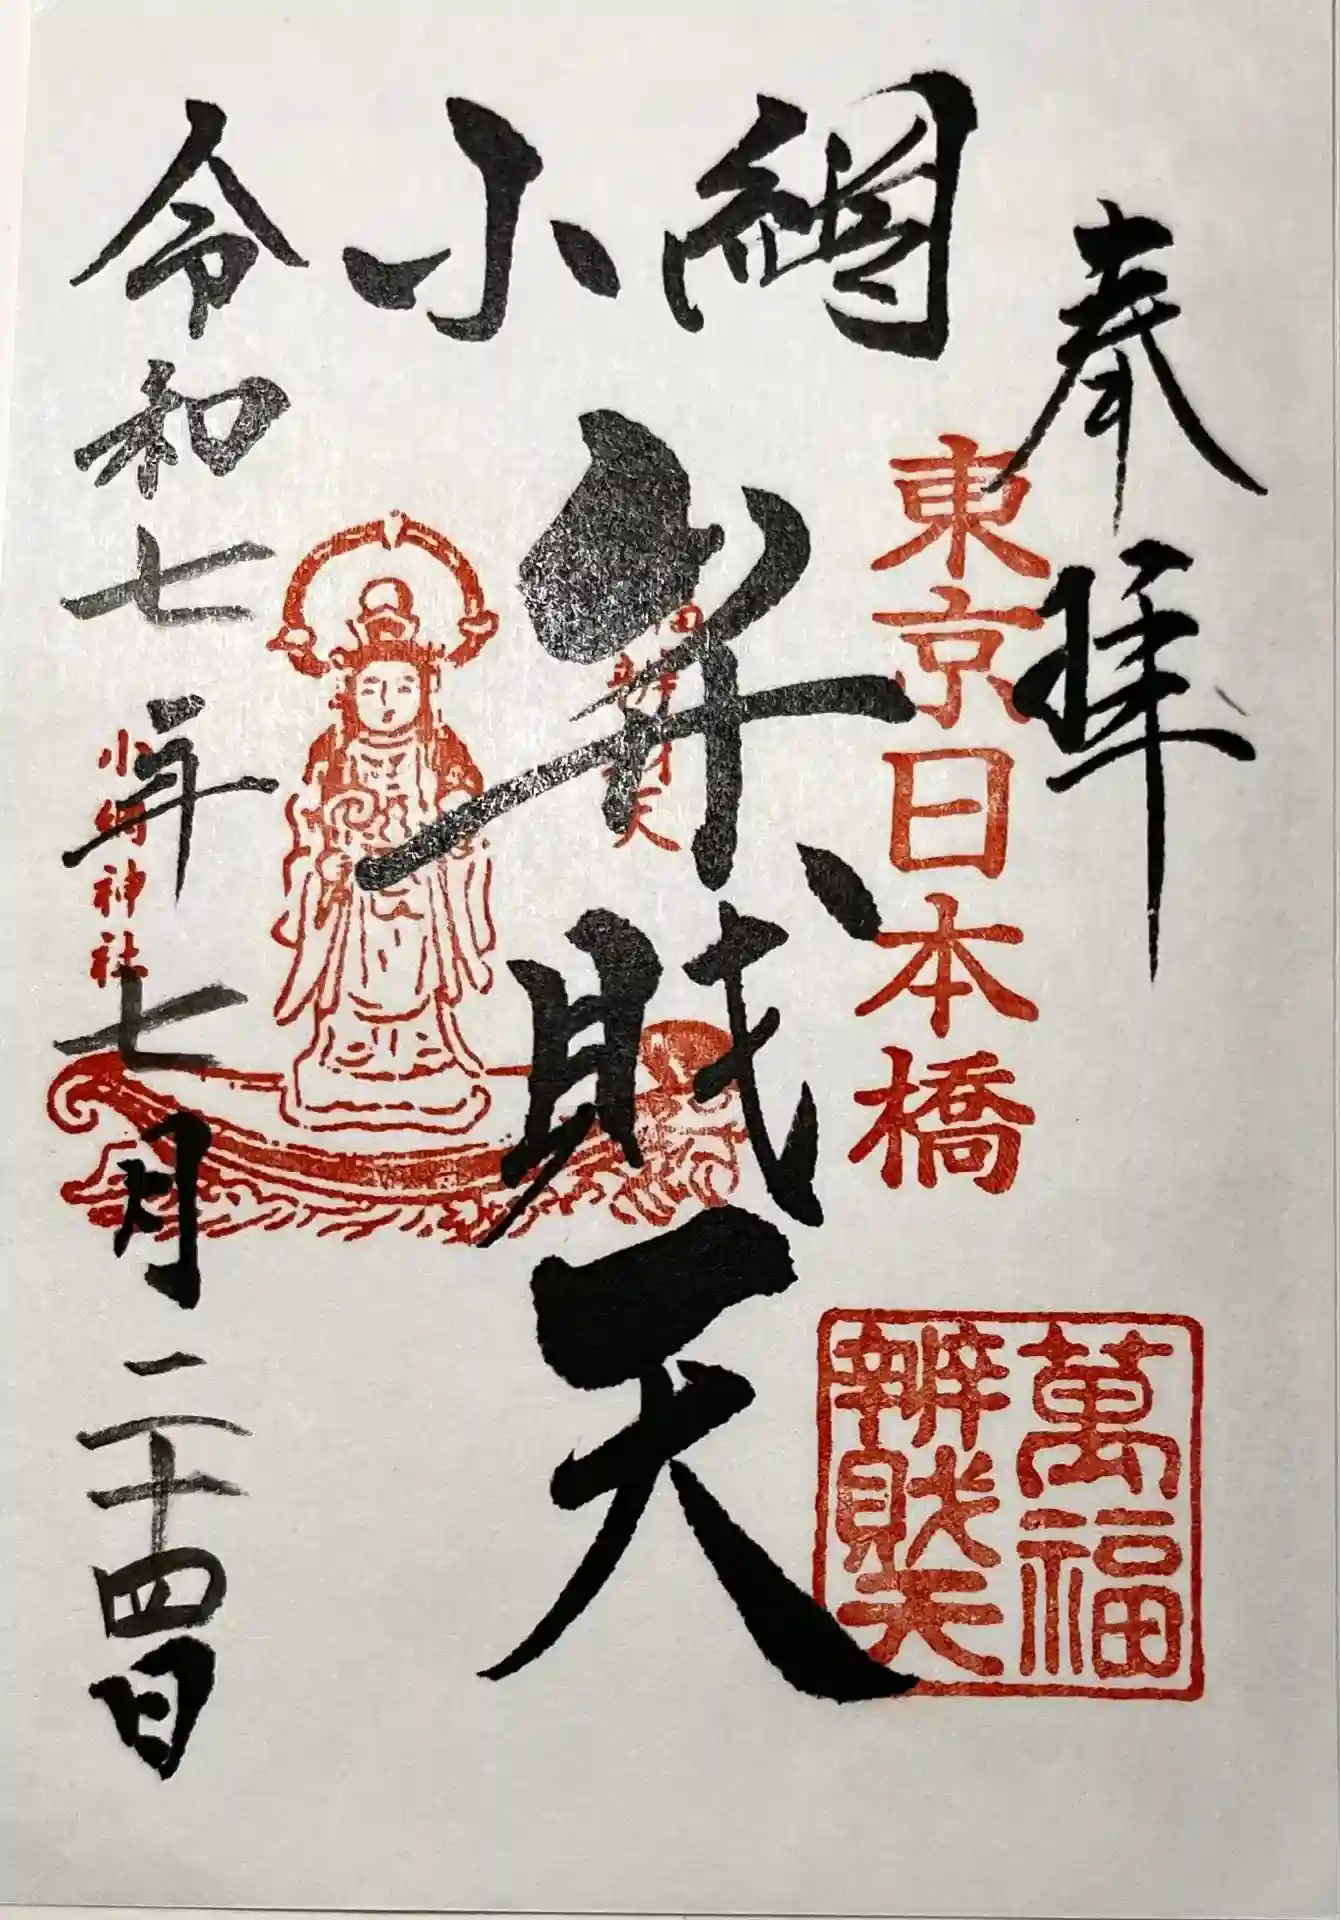 奉拝
東京日本橋
萬福
辨財天
小網
弁財天
令和七年七月二十四日
小網神社